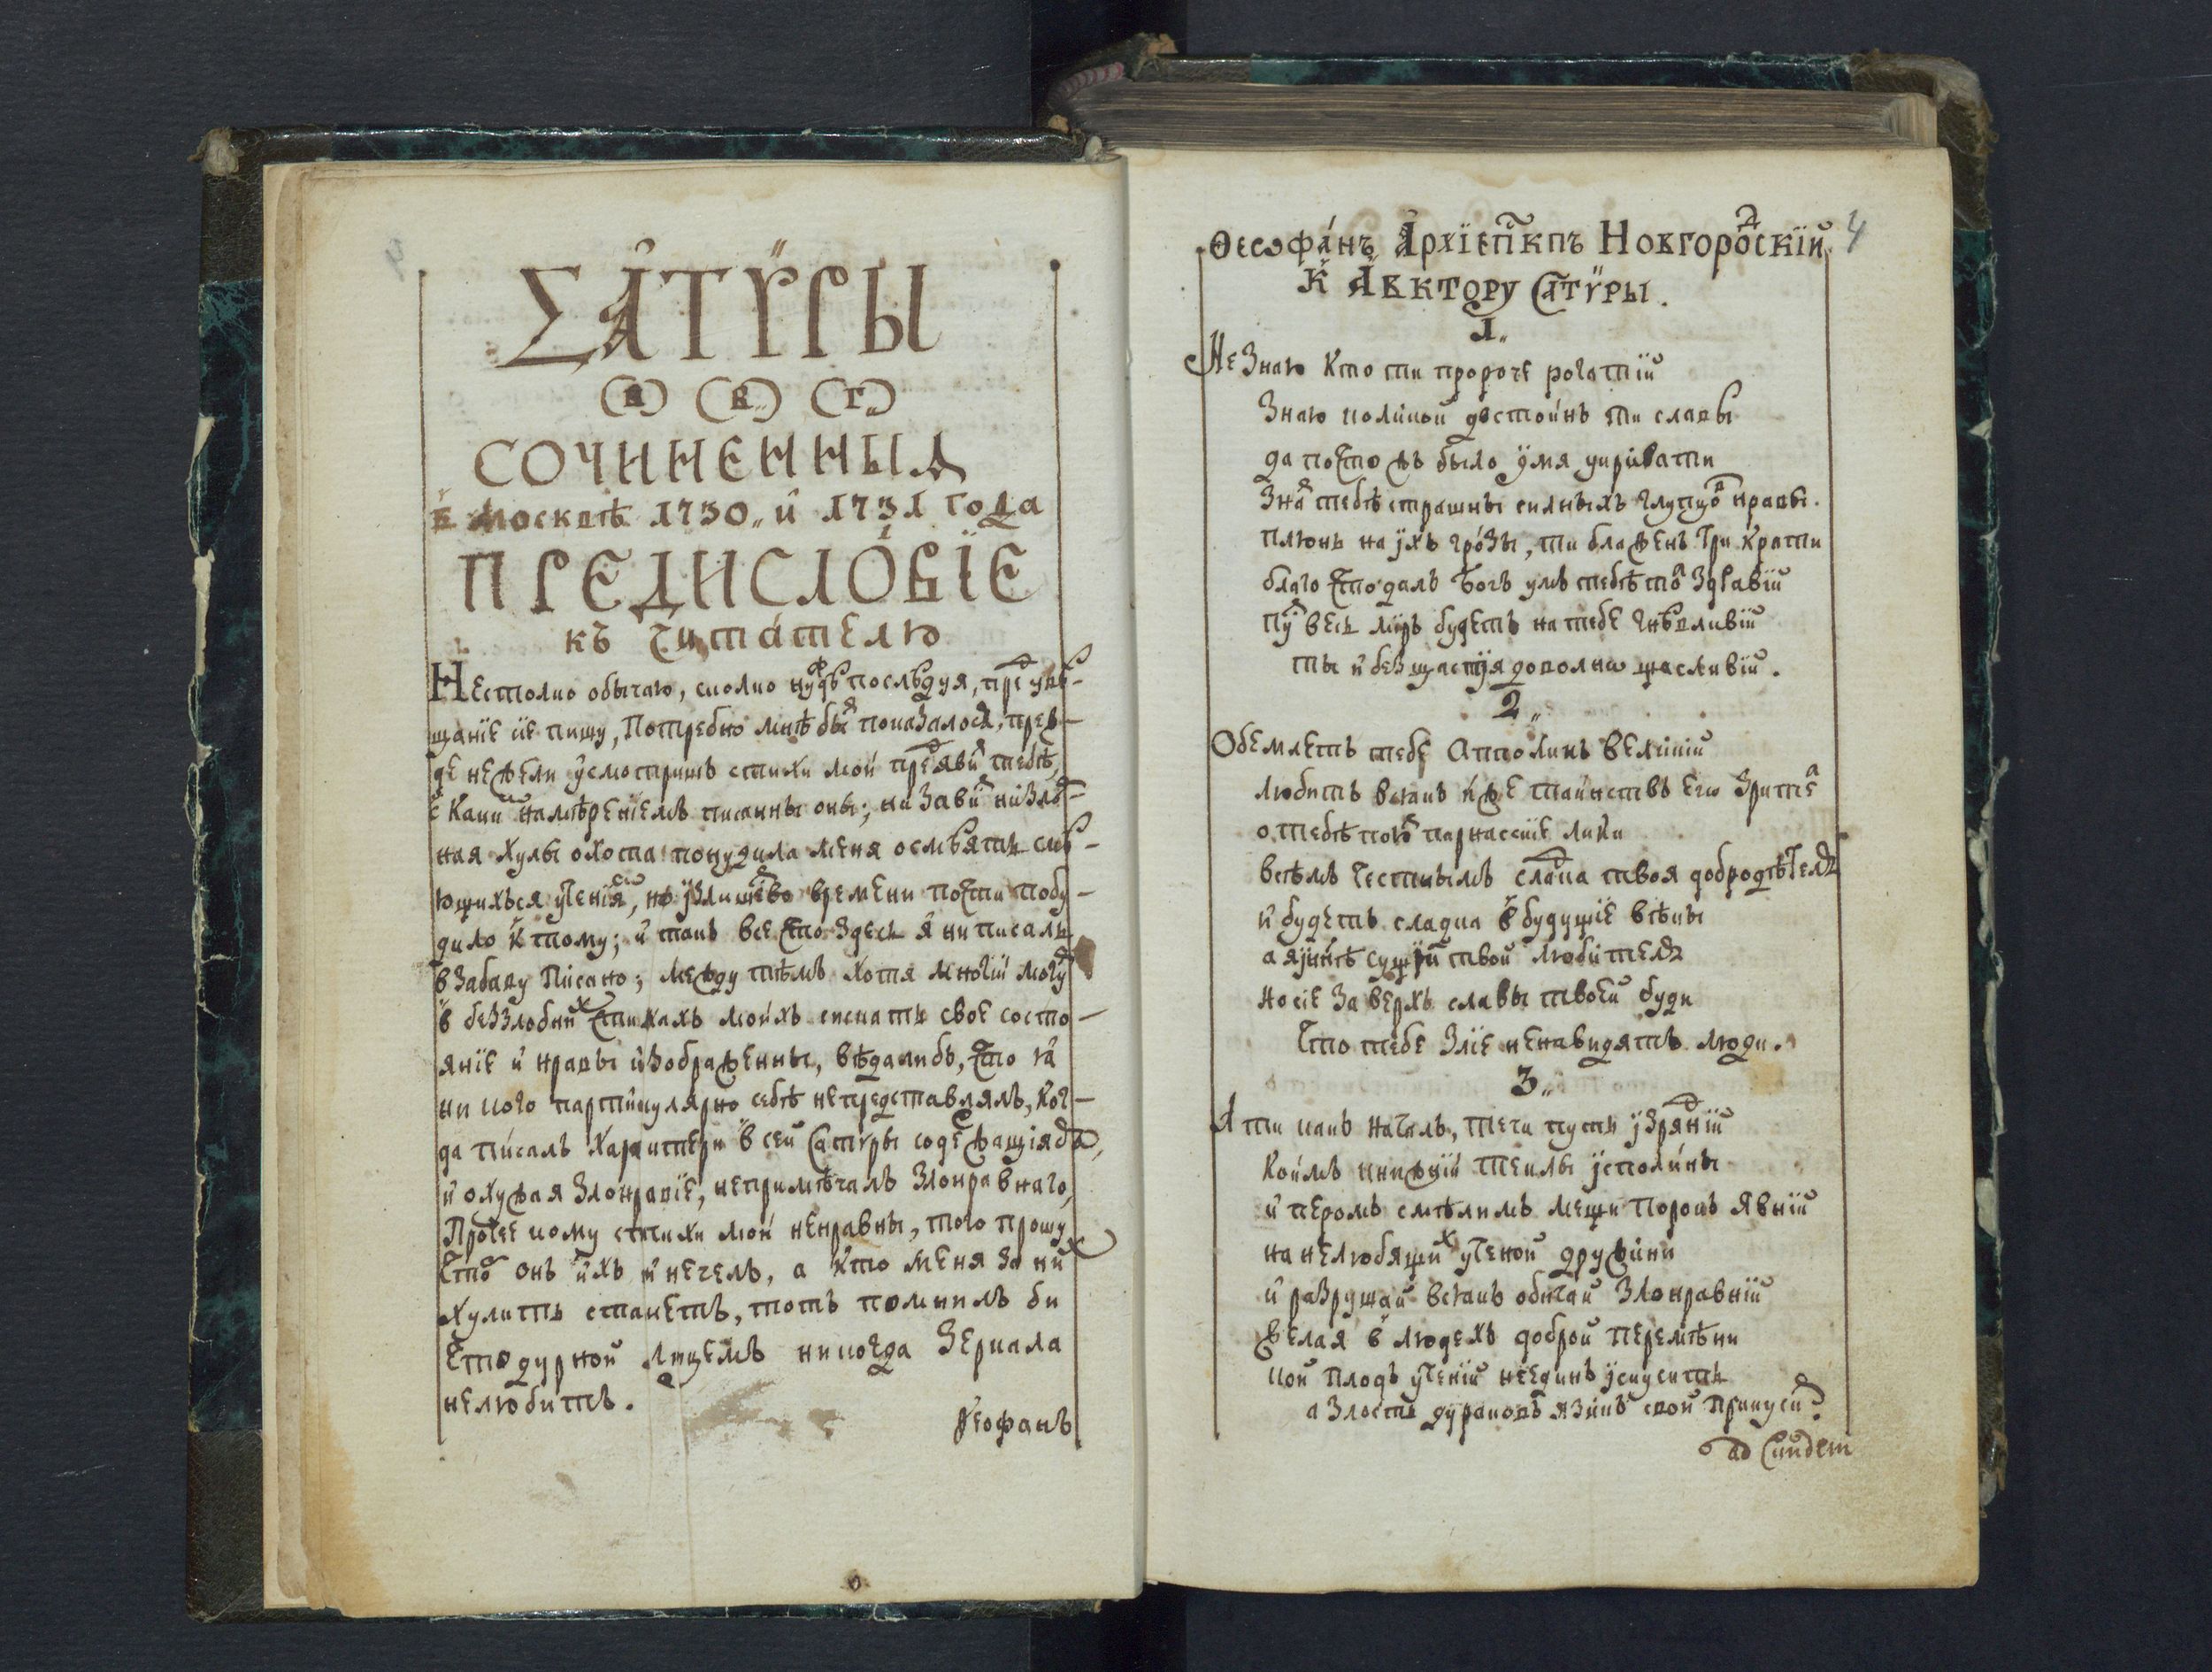 САТѴРЫ
а҃ в҃ г҃
СОЧИНЕННЫѦ
в Москвѣ 1730 и 1731 года
ПРЕДИСЛОВЇЕ
къ Читателю
Нестолко обычаю, сколко нуждѣ послѣдуя, предувѣ-
щанїе сїе пишу, Потребно мнѣ быть показалося, преж-
де нежели усмотришъ стихи мои предъявить тебѣ,
с каким намѣренїемъ писанны они; ни завис ни зло-
ная хулы охота понудила меня осмѣять смѣ-
ющихъся ученїям, но излишство времени почти побу-
дило к тому; и такъ все что здесь я ни писалъ
в забаву писано; между тѣмъ хотя многїи могут
в беззлобних стихахъ моихъ сискать свое состо-
янїе и нравы изображенны, вѣдалибъ, что я
ни кого партикулярно себѣ непредставлялъ, ког-
да писалъ характери в сей Сатѵры содержащїяся,
и охуждая злонравїе, непримѣчалъ злонравнаго,
Протчее кому стихи мои ненравны, того прошу
Что б онъ ихъ и нечелъ, а кто меня за них
хулить станетъ, тотъ помнилъ би
Что дурной лицемъ никогда зеркала
нелюбитъ.
Ѳеофанъ
4
Ѳеѡфанъ Архїепⷭ҇кпъ Новгородскїй
К Авктору Сатѵры.
1
Не знаю кто ти пророче рогатїй
Знаю коликой достоинъ ти славы
да почто жъ было имя укривати
Знат тебѣ страшны силныхъ глупцов нравы.
плюнь на ихъ грозы, ти блаженъ три крати
благо что далъ Богъ умъ тебѣ тол здравїй
пуст весь миръ будетъ на тебе гнѣвливїй
ты и без щастїя доволно щасливїй.
2
Обемлетъ тебе Апполинъ великїй
любитъ всякъ иже таинствъ его зрител
о тебѣ поют парнасскїе лики
всѣмъ честнымъ сладка твоя добродѣтель
и будетъ сладка в будущїе вѣки
а я инѣ сущїй твой любитель
но сїе за верхъ славы твоей буди
Что тебе злїе ненавидятъ люди.
3
А ти какъ началъ, течи путь изрядний
коимъ книжнїи текли исполины
и перомъ смѣлимъ мещи порокъ явнїй
на нелюбящих ученой дружини
и разрушай всякъ обичай злонравнїй
желая в людехъ доброй перемѣни
кой плодъ ученїй неединъ искуситъ
а злость дураковъ язикъ свой прикусит